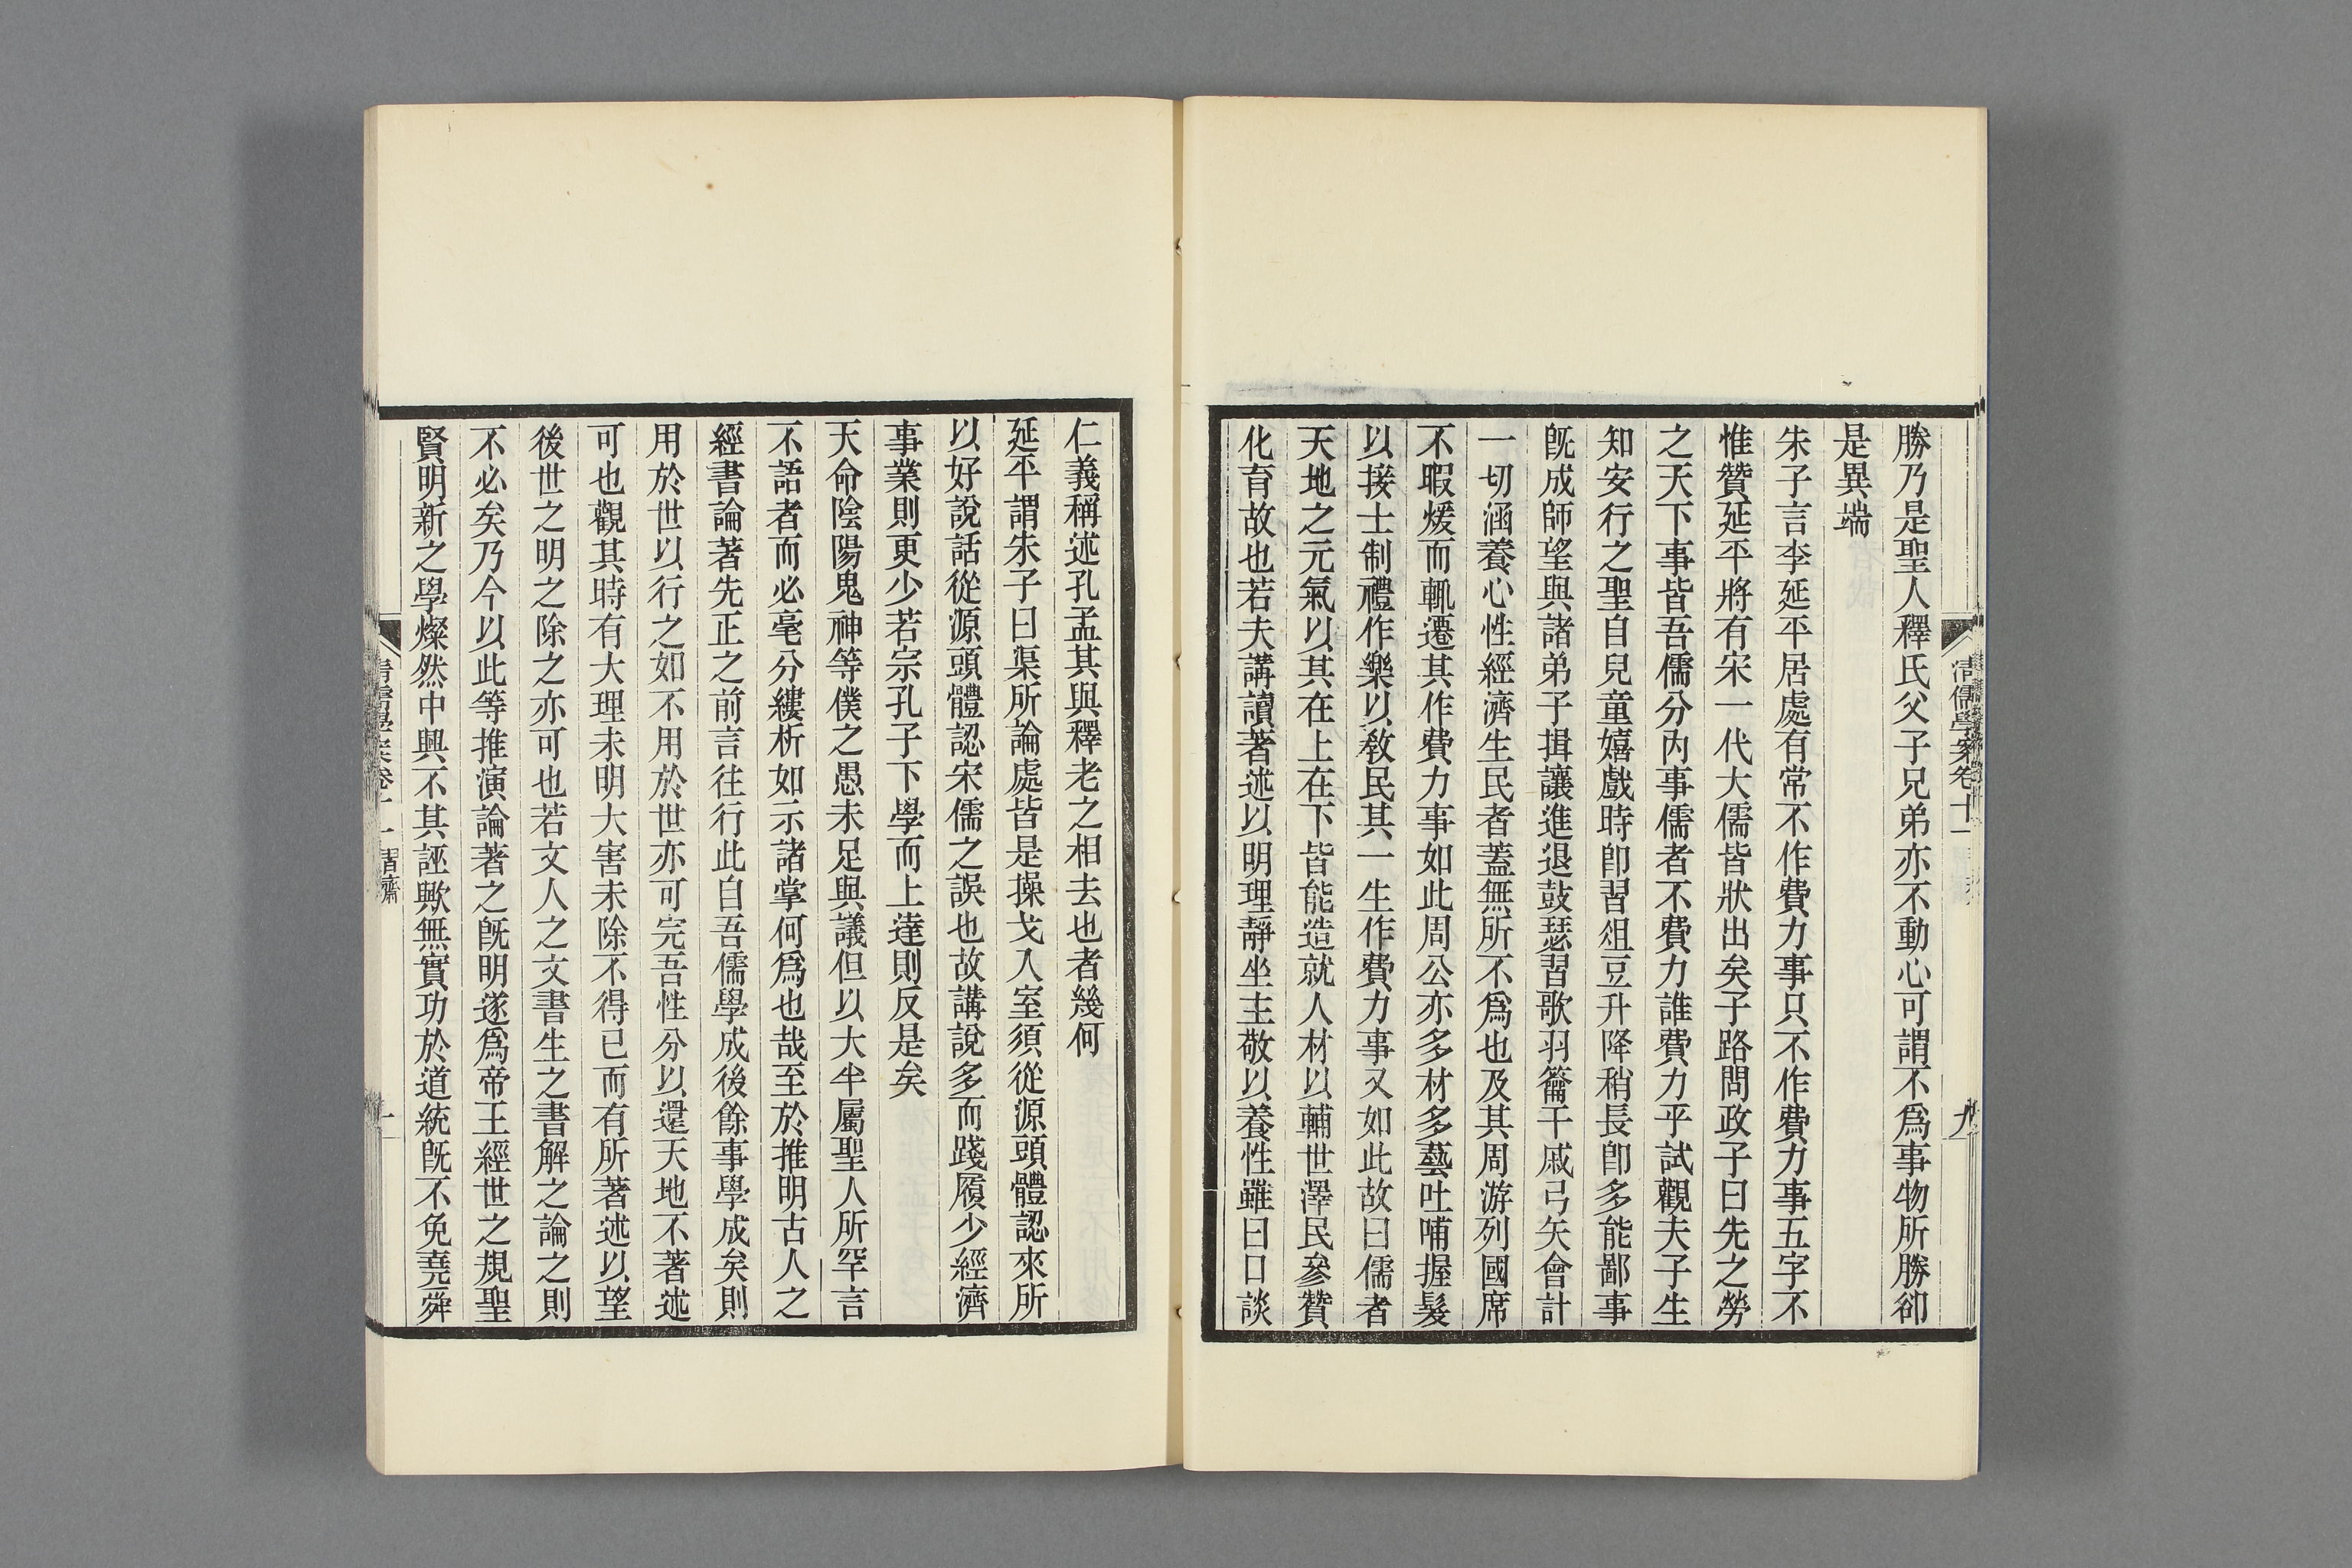 清儒學案卷十一
九
勝乃是聖人釋氏父子兄弟亦不動心可謂不爲事物所勝卻
是異端
朱子言李延平居處有常不作費力事只不作費力事五字不
惟贊延平將有宋一代大儒皆狀出矣子路問政子曰先之勞
之天下事皆吾儒分內事儒者不費力誰費力乎試觀夫子生
知安行之聖自兒童嬉戲時卽習俎豆升降稍長卽多能鄙事
旣成師望與諸弟子揖讓進退鼓瑟習歌羽籥干戚弓矢會計
一切涵養心性經濟生民者蓋無所不爲也及其周游列國席
不暇煖而輒遷其作費力事如此周公亦多材多藝吐哺握髮
以接士制禮作樂以敎民其一生作費力事又如此故曰儒者
天地之元氣以其在上在下皆能造就人材以輔世澤民參贊
化育故也若夫講讀著述以明理靜坐主敬以養性雖曰口談
仁義稱述孔孟其與釋老之相去也者幾何
延平謂朱子曰渠所論處皆是操戈入室須從源頭體認來所
以好說話從源頭體認宋儒之誤也故講說多而踐履少經濟
事業則更少若宗孔子下學而上達則反是矣
天命陰陽鬼神等僕之愚未足與議但以大半屬聖人所罕言
不語者而必毫分縷析如示諸掌何爲也哉至於推明古人之
經書論著先正之前言往行此自吾儒學成後餘事學成矣則
用於世以行之如不用於世亦可完吾性分以還天地不著述
可也觀其時有大理未明大害未除不得已而有所著述以望
後世之明之除之亦可也若文人之文書生之書解之論之則
不必矣乃今以此等推演論著之旣明遂爲帝王經世之規聖
賢明新之學燦然中興不其誣歟無實功於道統旣不免堯舜